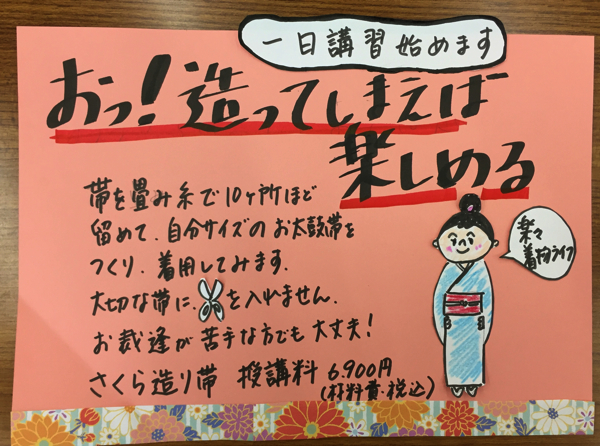 一日講習始めます
おっ！造ってしまえば
楽しめる
帯を畳み糸で10ヶ所ほど
留めて、自分サイズのお太鼓帯を
つくり、着用してみます。
大切な帯に、を入れません。
お裁縫が苦手な方でも大丈夫！
さくら造り帯 授講料 6.900円
(材料費・税込)
楽々
着物ライフ